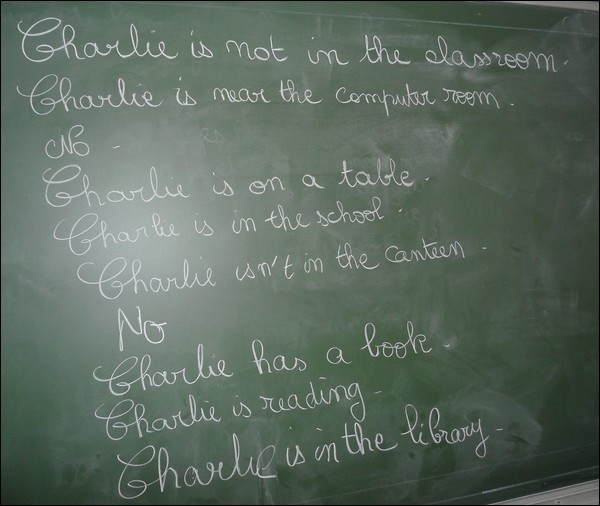 Charlie is not in the classroom.
Charlie is near the computer room.
No.
Charlie is on a table.
Charlie is in the school.
Charlie isn't in the canteen.
No
Charlie has a book.
Charlie is reading.
Charlie is in the library.